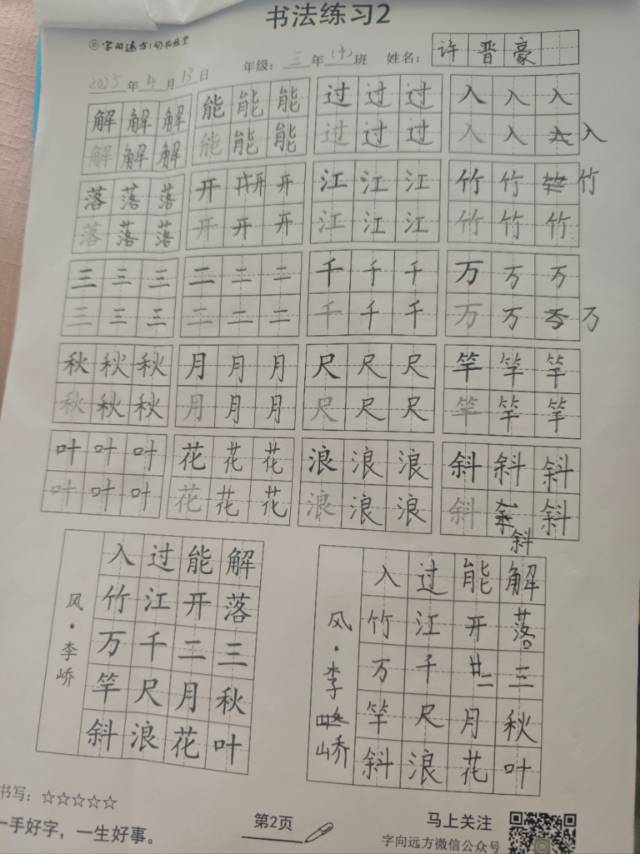 书法练习2
字向远方
年级：三年(十)班 姓名：许晋豪
2025年4月13日
解解解 能能能 过过过 入入入
解解解 能能能 过过过 入入 入
落落落 开 开开 江江江 竹竹 竹
落落落 开开开 江江江 竹竹竹
三三三 二二二 千千千 万万万
三三三 二二二 千千千 万万 万
秋秋秋 月月月 尺尺尺 竿竿竿
秋秋秋 月月月 尺尺尺 竿竿竿
叶叶叶 花花花 浪浪浪 斜斜斜
叶叶叶 花花花 浪浪浪 斜 斜
斜
入过能解
竹江开落
万千二三
竿尺月秋
斜浪花叶
风·李峤
入过能解
竹江开落
万千二三
竿尺月秋
斜浪花叶
风·李峤
书写：☆☆☆☆☆
一手好字，一生好事。
第2页
马上关注
字向远方微信公众号